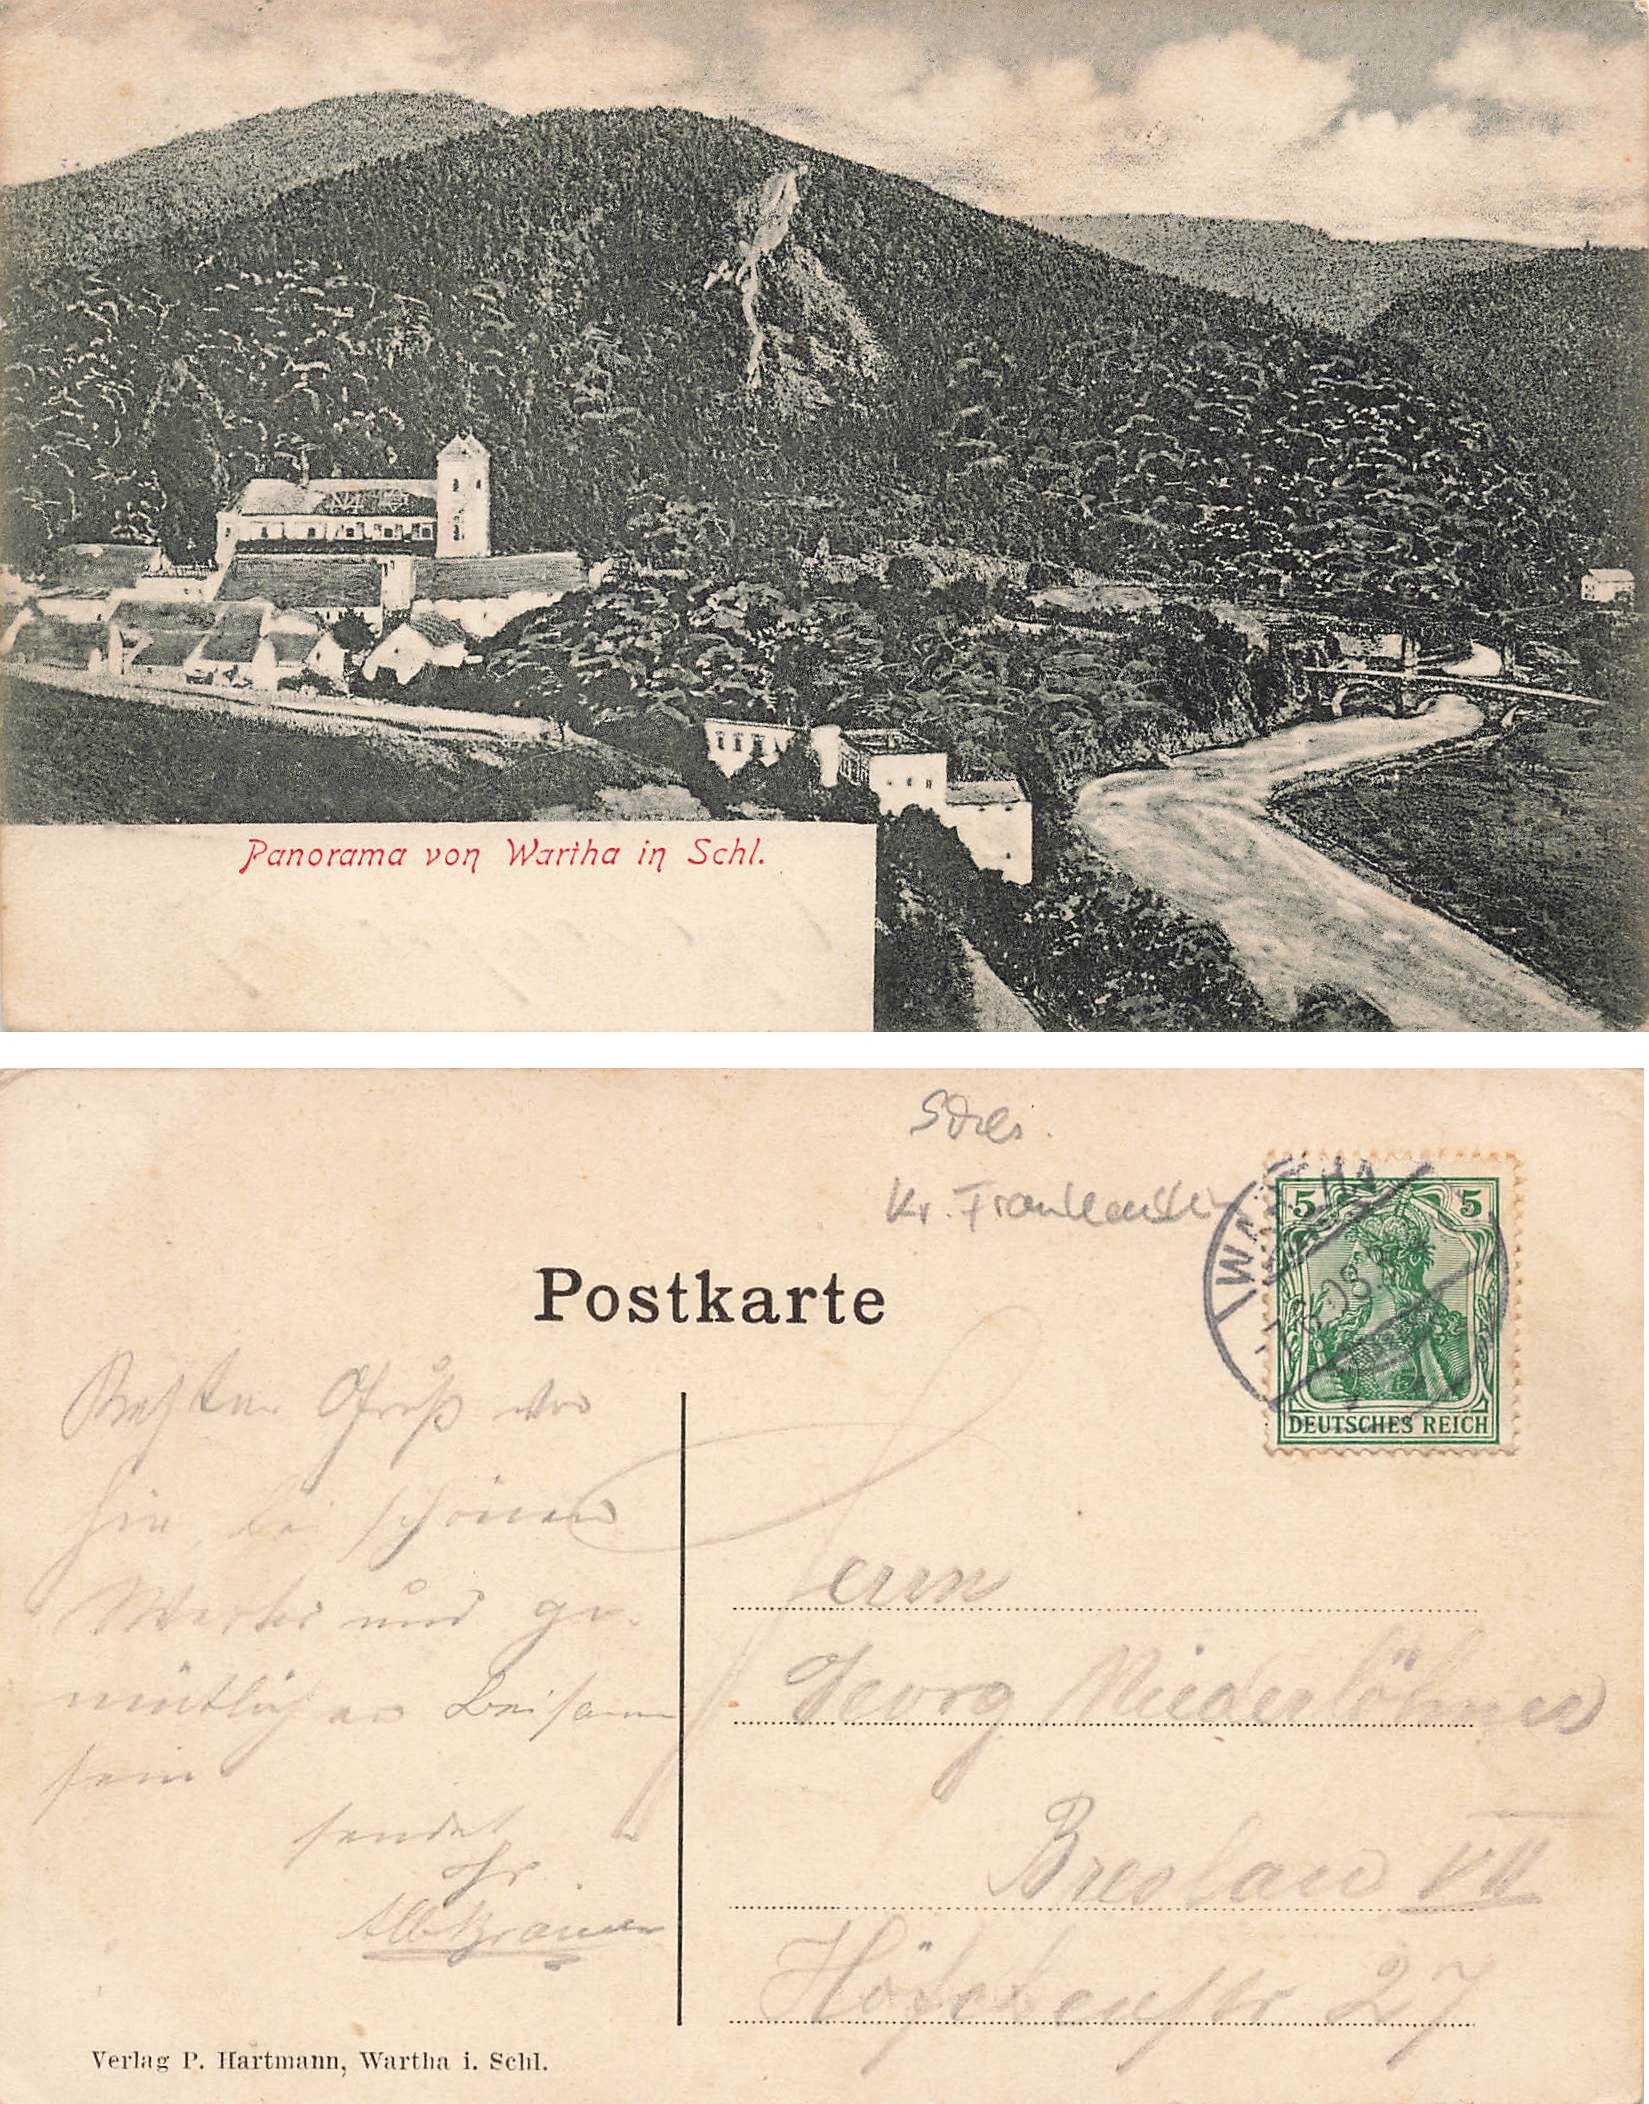 Panorama von Wartha in Schl.
Schles.
Kr. Frankenstein
WARTHA
08
5 5
DEUTSCHES REICH
Postkarte
Besten Gruß von
hier bei schönem
Wetter und ge-
mütlichen Beisamm
sein
sendet
Ihr
Herrn
Georg Niederlöhner
Breslau VII
Höfchenstr 27
Verlag P. Hartmann, Wartha i. Schl.